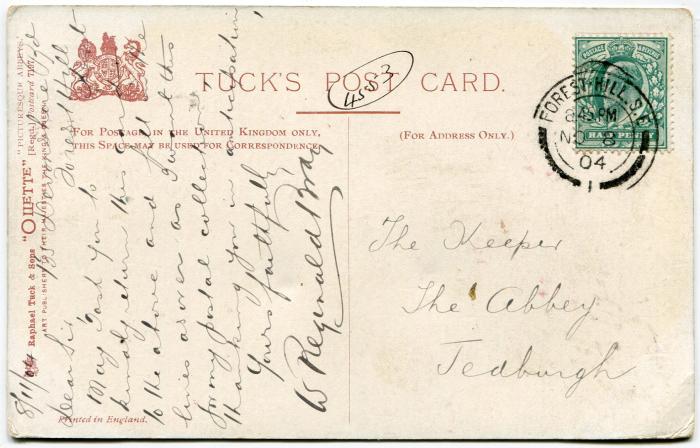 TUCK'S POST CARD.
4553
FOR POSTAGE IN THE UNITED KINGDOM ONLY,
THIS SPACE MAY BE USED FOR CORRESPONDENCE
(FOR ADDRESS ONLY.)
POSTAGE
HALFPENNY
FOREST-HILL. S.E
8.45 PM
NO 8
04
1
The Keeper
The Abbey
Jedburgh
Raphael Tuck & Sons "OILETTE" [Regd.] Postcard
"PICTURESQUE ABBEYS."
ART PUBLISHERS TO THEIR MAJESTIES THE KING & QUEEN
8/11/04
Forest Hill
Dear Sir,
May I ask you to
kindly return this
to the above and fill the
lines as over as I want this
for my postal collection
Thanking you in anticipation
Yours faithfully
W Reginald Bray
Printed in England.